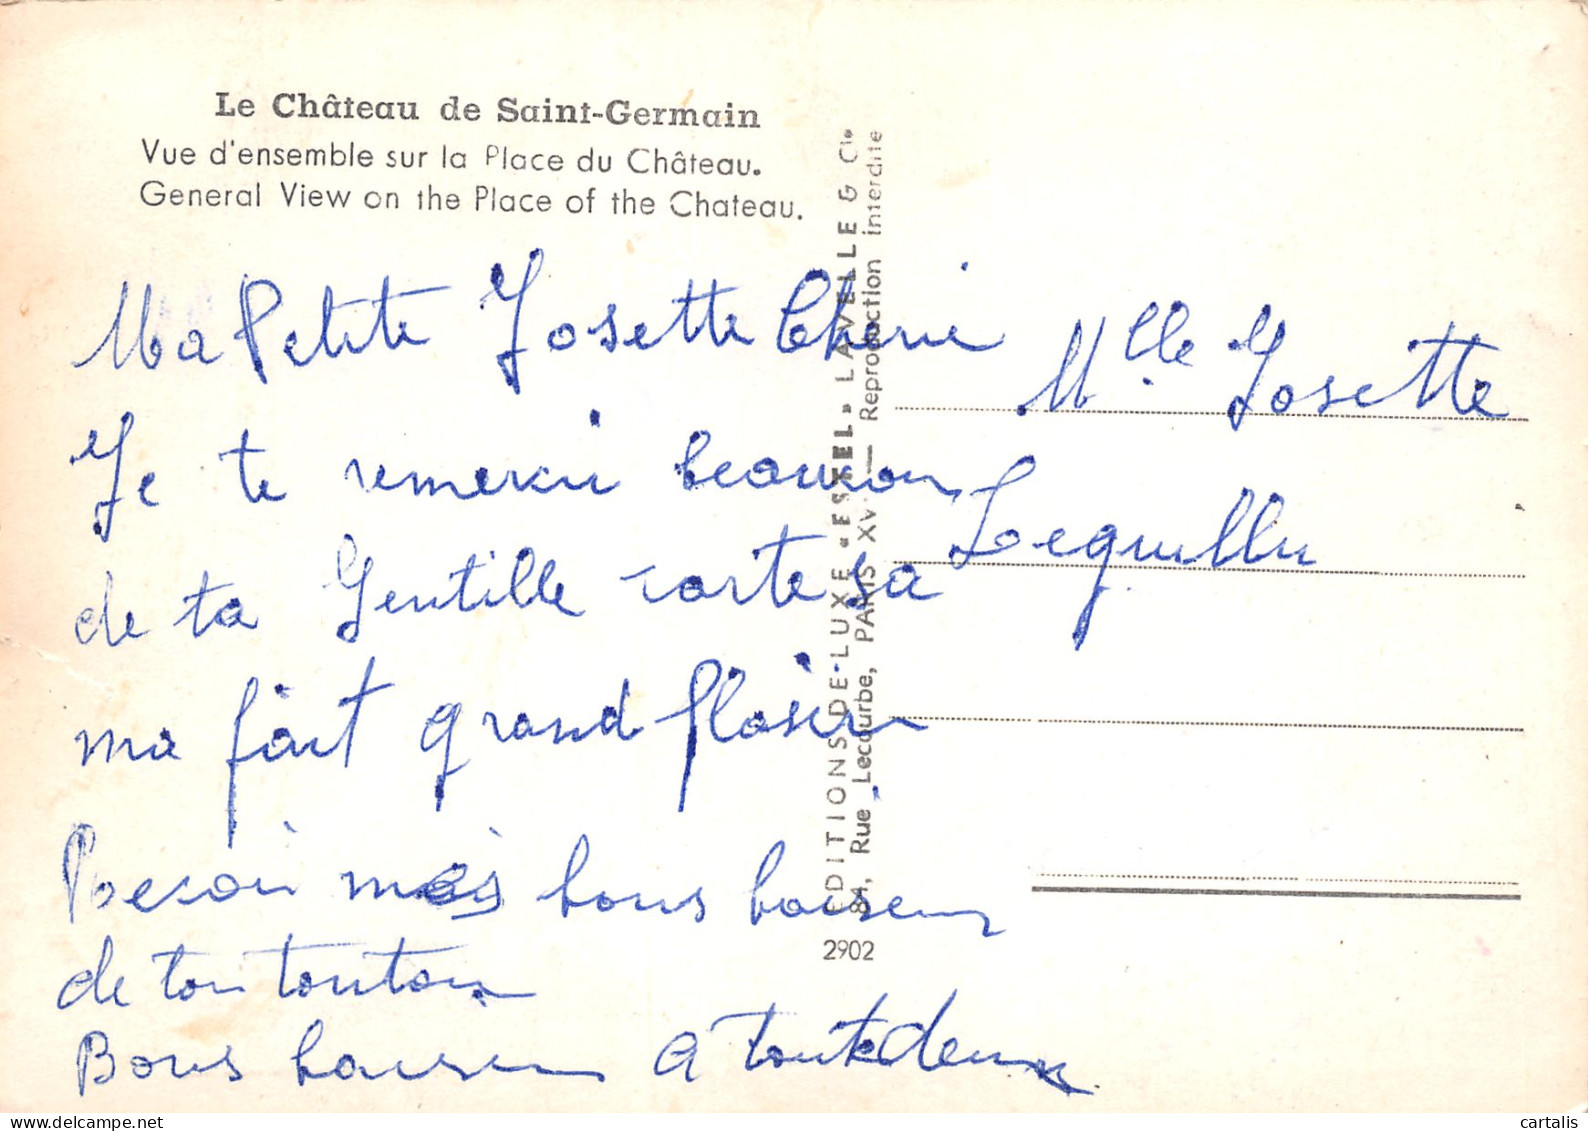 Le Château de Saint-Germain
Vue d'ensemble sur la Place du Château.
General View on the Place of the Chateau.
Ma Petite Josette Cherie
Je te remercii beaucou
de ta Gentille carte sa
ma fait grand Plaisir
Recoi mes bons baisers
de ton tonton
Bons baisers a toute deux
Mlle Josette
Lequillu
EDITIONS DE LUXE "ESTEL" LAVELLE & Cie
84, Rue Lecourbe, PARIS XV — Reproduction interdite
2902
cartalis